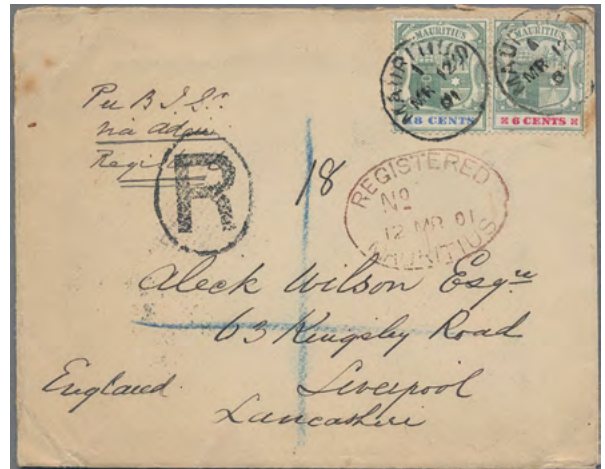 MAURITIUS MAURITIUS
8 CENTS 6 CENTS
MAURITIUS
1
MR 12
01
MAURITIUS
MR 12
Per B I St.
via Aden
Registered
R
18
REGISTERED
No
12 MR 01
MAURITIUS
Aleck Wilson Esqre
63 Kingsley Road
Liverpool
England
Lancashire